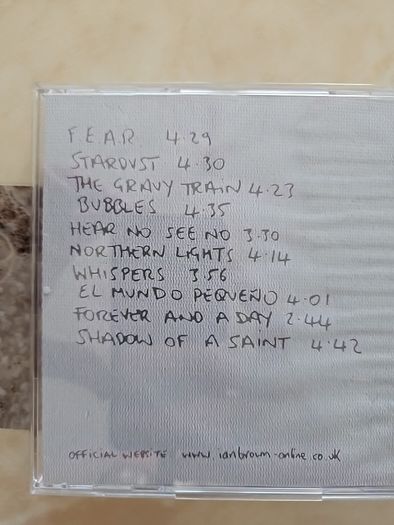 F.E.A.R. 4.29
STARDUST 4.30
THE GRAVY TRAIN 4.23
BUBBLES 4.35
HEAR NO SEE NO 3.30
NORTHERN LIGHTS 4.14
WHISPERS 3.56
EL MUNDO PEQUEÑO 4.01
FOREVER AND A DAY 2.44
SHADOW OF A SAINT 4.42
OFFICIAL WEBSITE www.ianbrown-online.co.uk